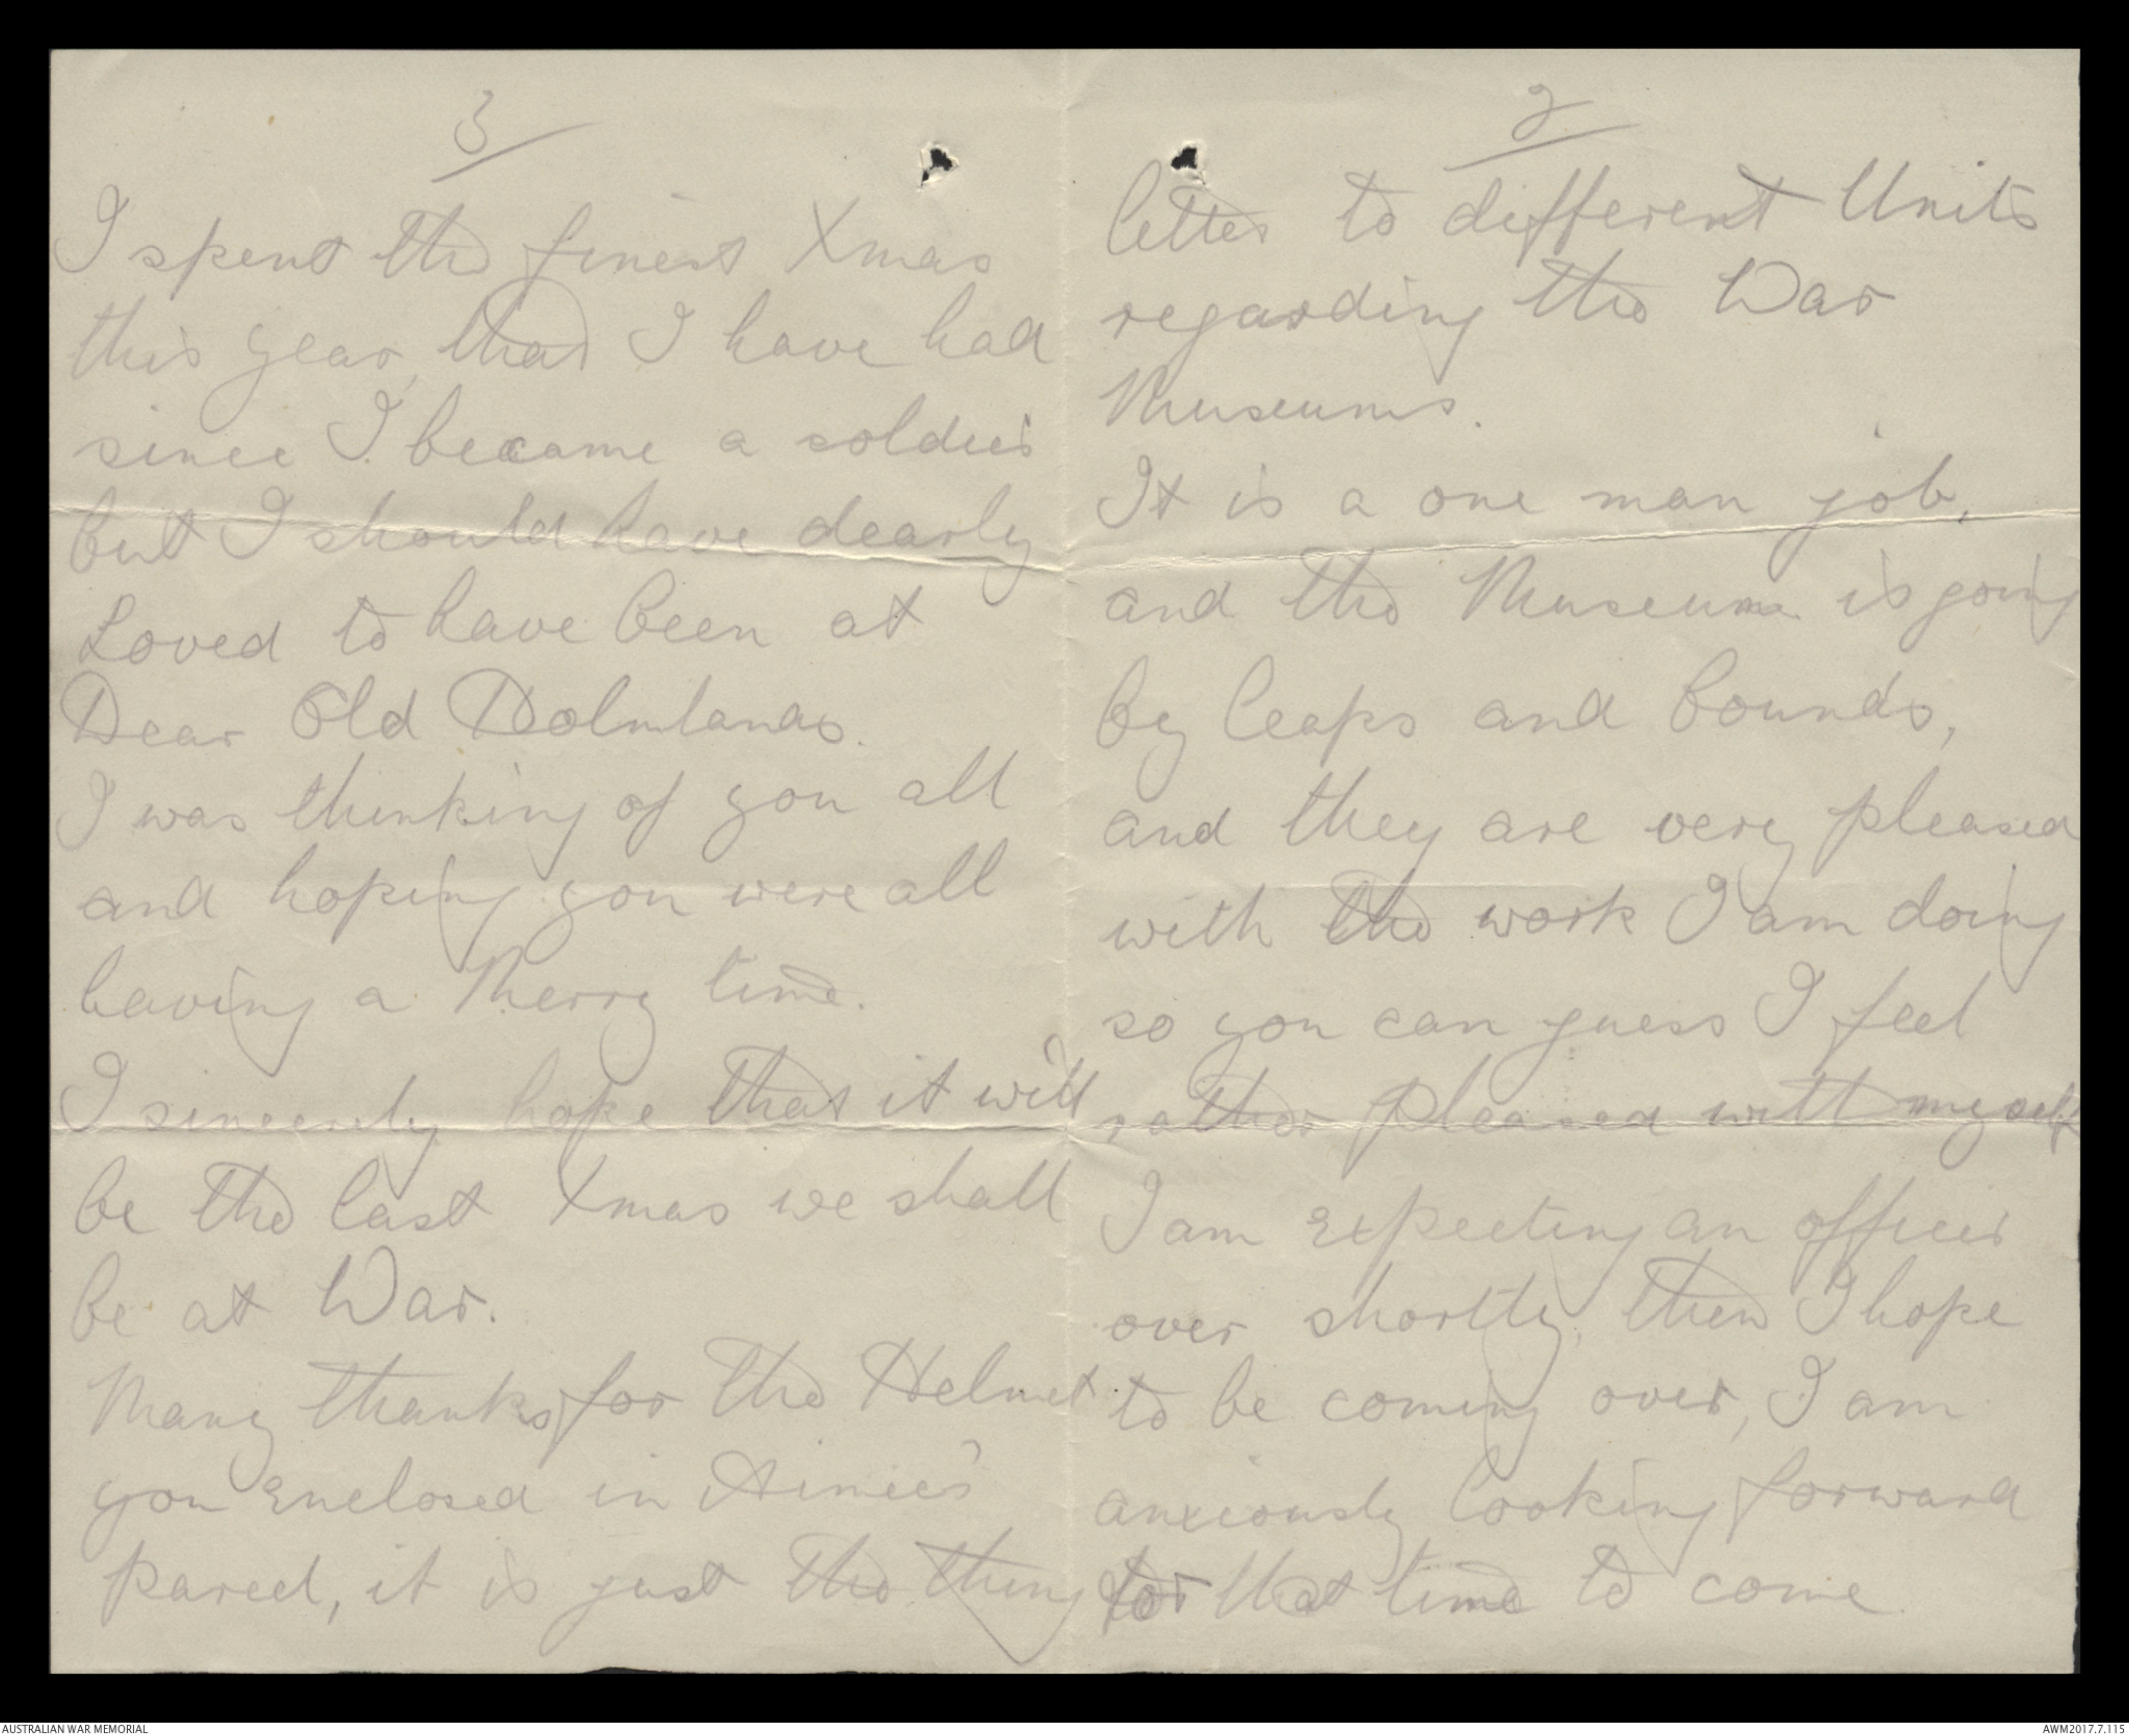 2
letter to different Units
regarding the War
Museums.
It is a one man job,
and the Museums is going
by leaps and bounds,
and they are very pleased
with the work I am doing
so you can guess I feel
rather pleased with myself
I am expecting an officer
over shortly, then I hope
to be coming over, I am
anxiously looking forward
for that time to come
3
I spent the finest Xmas
this year, that I have had
since I became a soldier
but I should have dearly
Loved to have been at
Dear Old
I was thinking of you all
and hoping you were all
having a Merry time.
I sincerely hope that it will
be the last Xmas we shall
be at War.
Many thanks for the Helmet
you enclosed in Aimee's
parcel, it is just the thing
AUSTRALIAN WAR MEMORIAL
AWM2017.7.115